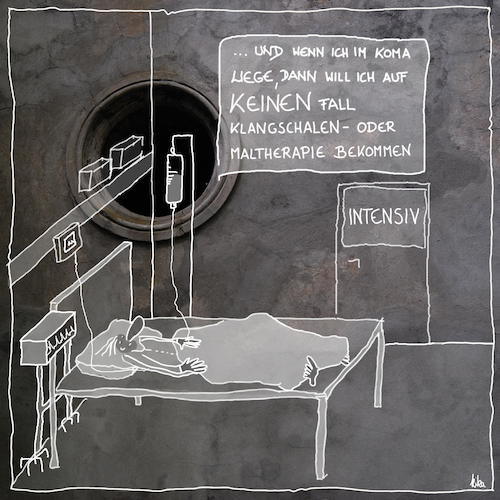 ... UND WENN ICH IM KOMA
LIEGE, DANN WILL ICH AUF
KEINEN FALL
KLANGSCHALEN- ODER
MALTHERAPIE BEKOMMEN
INTENSIV